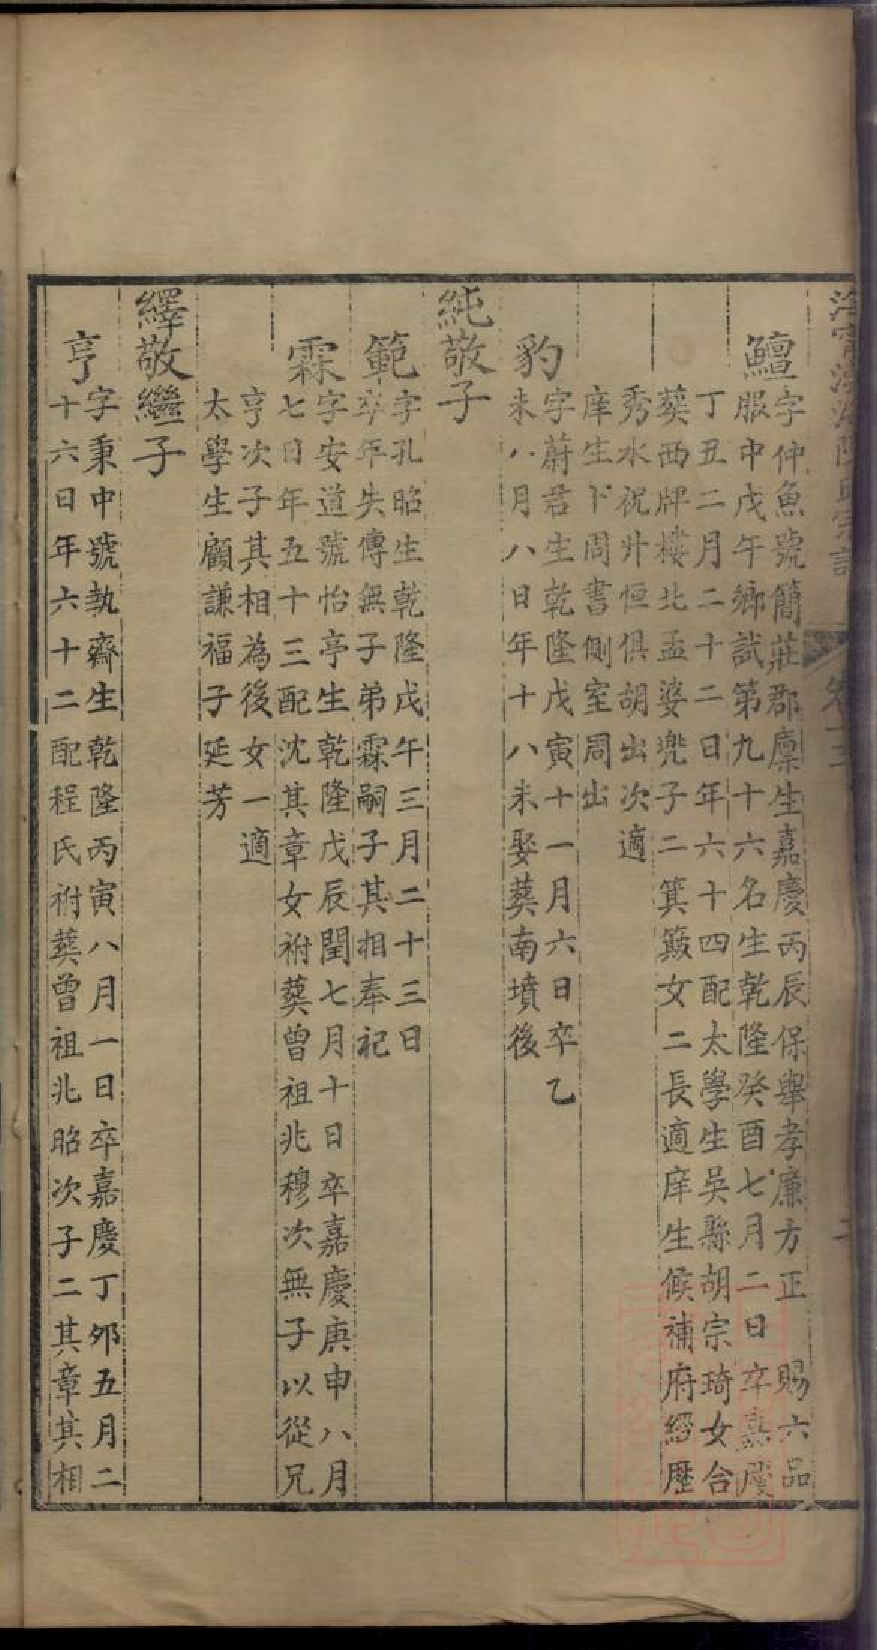 鱣
字仲魚號簡莊郡廩生嘉慶丙辰保舉孝廉方正 賜六品
服中戊午鄉試第九十六名生乾隆癸酉七月二日卒嘉慶
丁丑二月二十二日年六十四配太學生吳縣胡宗琦女合
葬西牌樓北孟婆兜子二箕簸女二長適庠生候補府經歷
秀水祝升恒俱胡出次適
庠生卞周書側室周出
豹
字蔚君生乾隆戊寅十一月六日卒乙
未八月八日年十八未娶葬南墳後
純敬子
範
字孔昭生乾隆戊午三月二十三日
卒年失傳無子弟霖嗣子其相奉祀
霖
字安道號怡亭生乾隆戊辰閏七月十日卒嘉慶庚申八月
七日年五十三配沈其章女祔葬曾祖兆穆次無子以從兄
亨次子其相為後女一適
太學生顧謙福子延芳
繹敬繼子
亨
字秉中號執齋生乾隆丙寅八月一日卒嘉慶丁卯五月二
十六日年六十二配程氏祔葬曾祖兆昭次子二其章其相